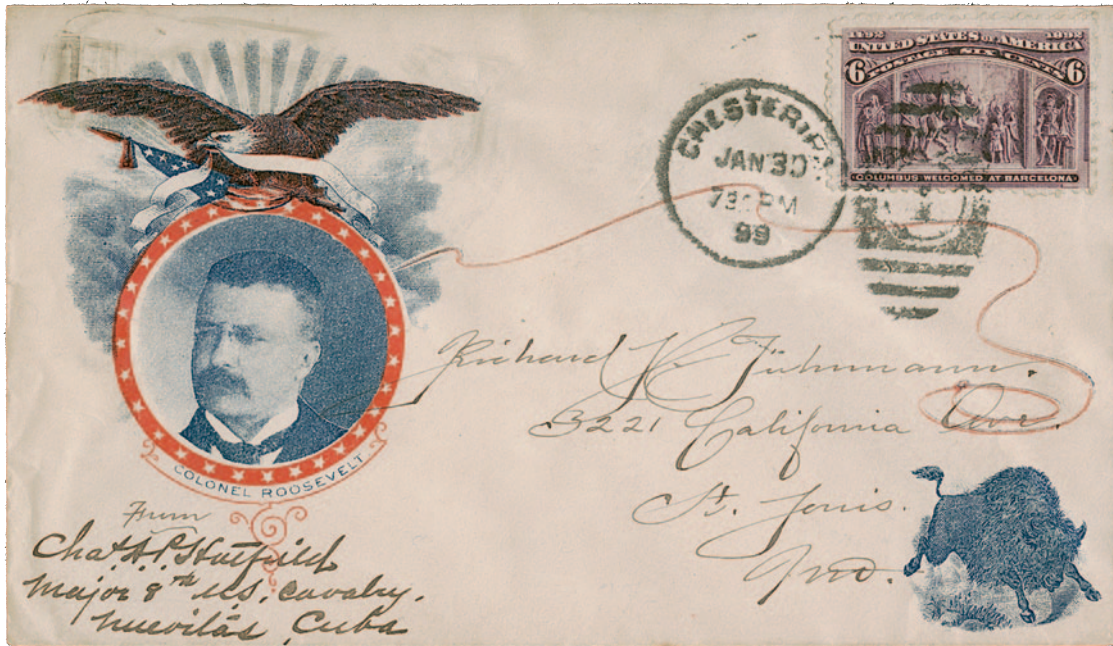 1492 1892
UNITED STATES OF AMERICA
POSTAGE SIX CENTS
6 6
COLUMBUS WELCOMED AT BARCELONA
JAN 30
PM
99
COLONEL ROOSEVELT
Richard
3221 California Ave.
St. Louis.
Mo.
From
Chas. A. P. Hatfield
Major 8th U.S. Cavalry.
Nuevitas, Cuba